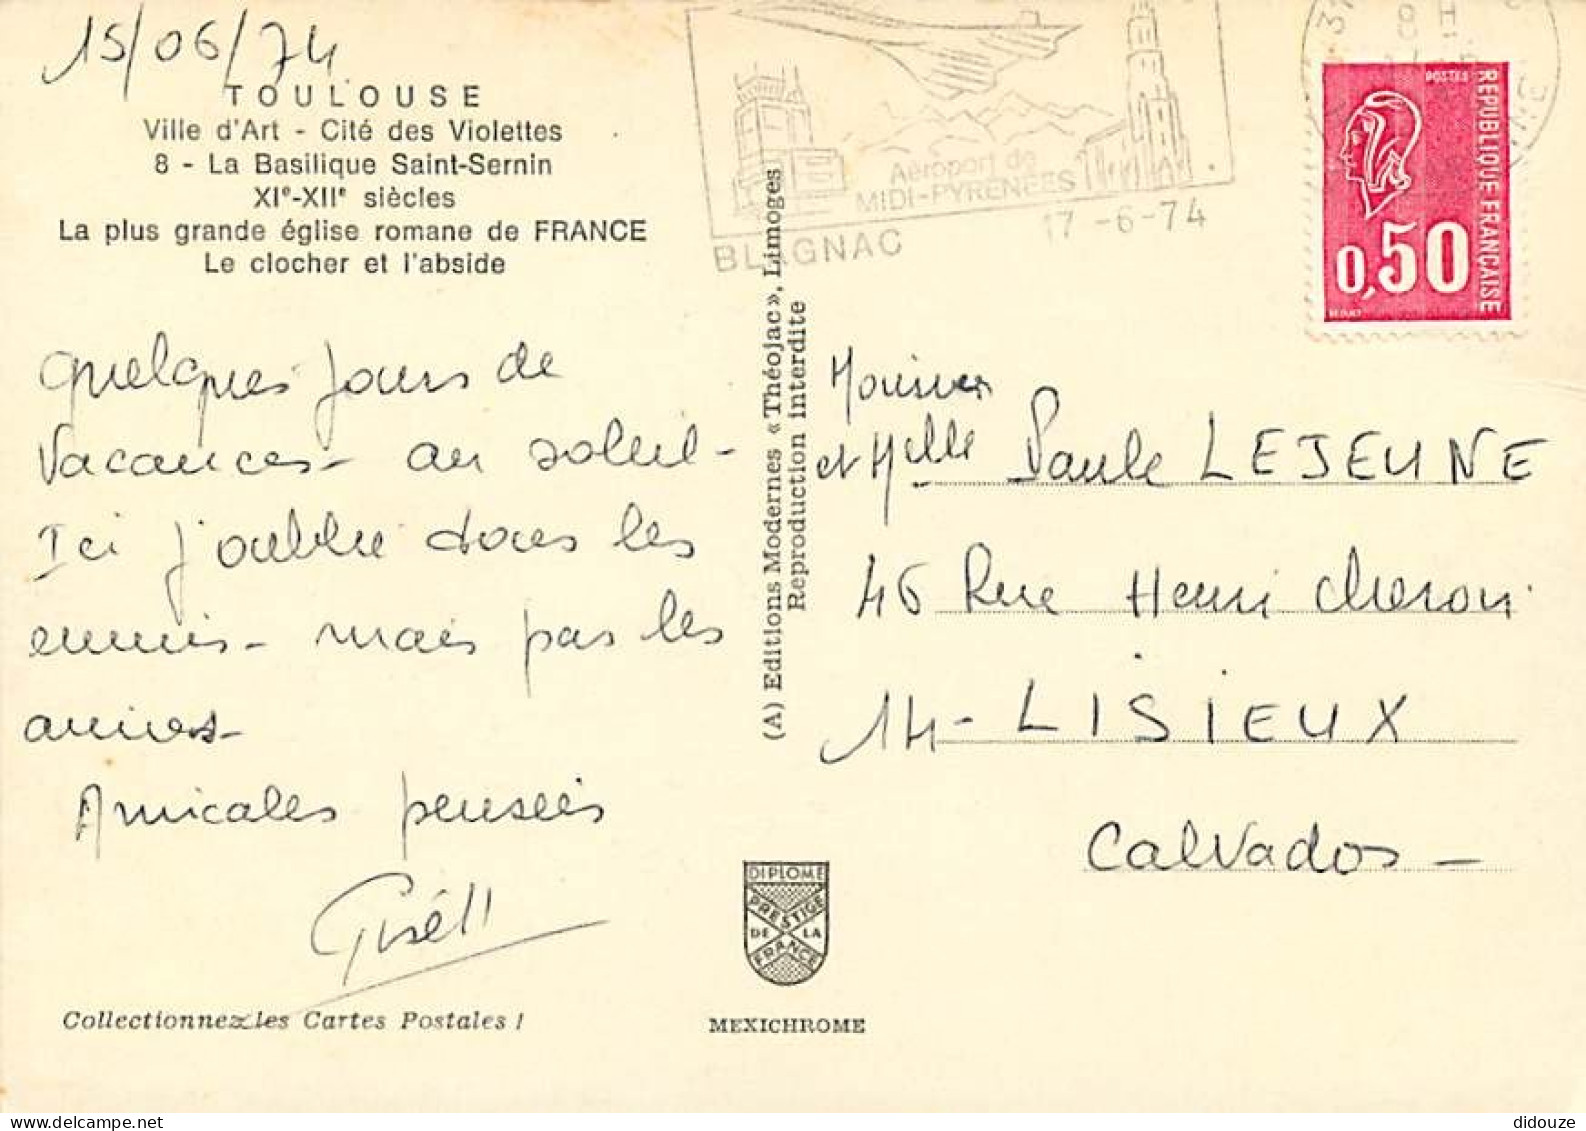 15/06/74
TOULOUSE
Ville d'Art - Cité des Violettes
8 - La Basilique Saint-Sernin
XIe-XIIe siècles
La plus grande église romane de FRANCE
Le clocher et l'abside
Quelques jours de
vacances - au soleil -
Ici j'oublie tous les
ennuis - mais pas les
amies -
Amicales pensées
Collectionnez les Cartes Postales !
(A) Editions Modernes «Théojac», Limoges
Reproduction interdite
DIPLOME
PRESTIGE
DE LA
FRANCE
MEXICHROME
Aéroport de
MIDI-PYRENEES
BLAGNAC
17 -6-74
8 H
POSTES
REPUBLIQUE FRANÇAISE
0,50
Monsieur
et Melle Paule LEJEUNE
46 Rue Henri Cheron
14 - LISIEUX
Calvados -
didouze